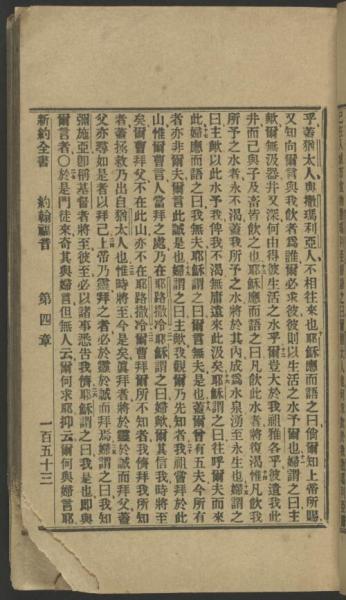 乎蓋猶太人與撒瑪利亞人不相往來也耶穌應而語之曰倘爾知上帝所賜
又知向爾言與我飲者爲誰爾必求彼彼則以生活之水予爾也婦謂之曰主
歟爾無汲器井又深何由得彼生活之水乎爾豈大於我祖雅各乎彼遺我此
井而己與子及畜皆飲之也耶穌應而語之曰凡飲此水者將復渴惟凡飲我
所予之水者永不渴蓋我所予之水將於其內成爲水泉湧至永生也婦謂之
曰主歟以此水予我俾我不渴無庸遠來此汲矣耶穌謂之曰往呼爾夫而來
此婦應而語之曰我無夫耶穌謂之曰爾言無夫是也蓋爾曾有五夫今所有
者亦非爾夫爾言此誠是也婦謂之曰主歟我觀爾乃先知者我祖嘗拜於此
山惟爾曹言人當拜之處乃在耶路撒冷耶穌謂之曰婦歟爾其信我時將至
矣爾曹拜父不在此山亦不在耶路撒冷爾曹拜爾所不知者我儕拜我所知
者蓋拯救乃出自猶太人也惟時將至今是矣眞拜者將於靈於誠而拜父蓋
父亦尋如是者以拜己上帝乃靈拜之者必於靈於誠而拜焉婦謂之曰我知
彌施亞卽稱基督者將至彼至必以諸事悉吿我儕耶穌謂之曰我是也卽與
爾言者○於是門徒來奇其與婦言但無人云爾何求耶抑云爾何與婦言耶
新約全書 約翰福音 第四章 一百五十三